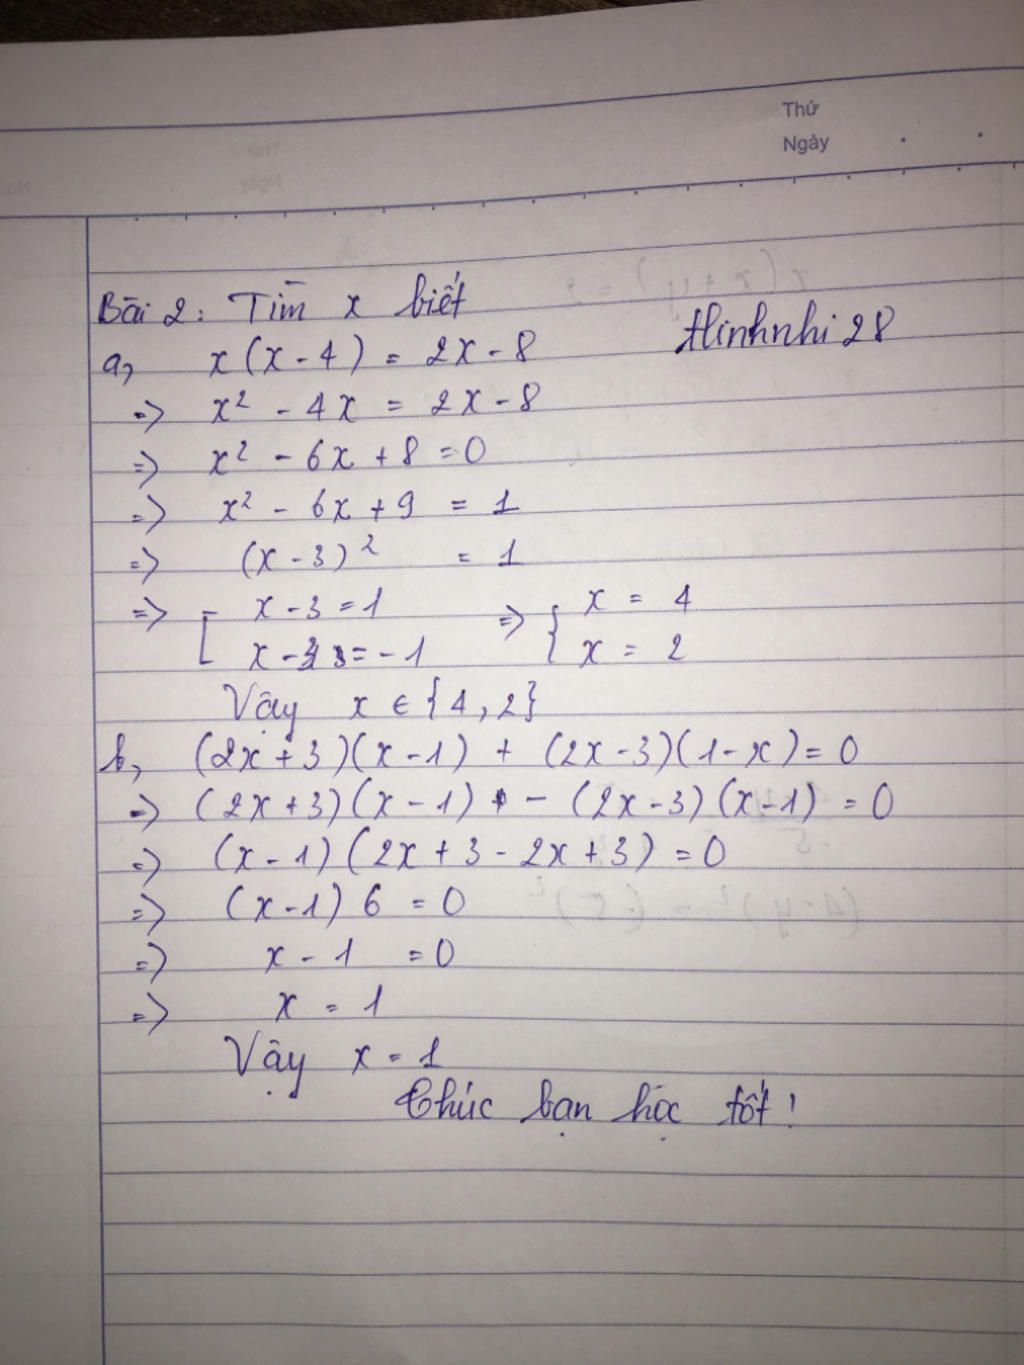 Thứ
Ngày
Bài 2: Tìm x biết
Hinhnhi28
a, x(x-4) = 2x-8
=> x² - 4x = 2x-8
=> x² - 6x + 8 = 0
=> x² - 6x + 9 = 1
=> (x-3)² = 1
=> [ x-3 = 1 => { x = 4
x-3 = -1 x = 2
Vậy x ∈ {4, 2}
b, (2x+3)(x-1) + (2x-3)(1-x) = 0
=> (2x+3)(x-1) - (2x-3)(x-1) = 0
=> (x-1)(2x+3-2x+3) = 0
=> (x-1)6 = 0
=> x-1 = 0
=> x = 1
Vậy x = 1
Chúc bạn học tốt!